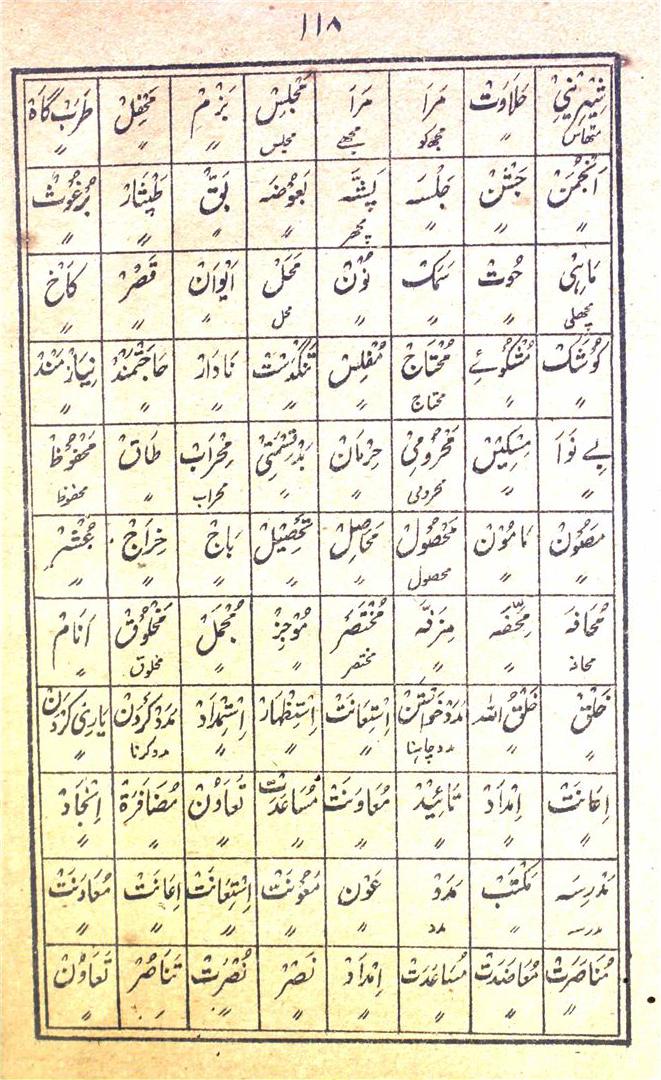 ۱۱۸
شیرینی حلاوت مرا مرا مجلس بزم محفل طرب گاہ
مٹھاس 〃 مجھ کو مجھے مجلس 〃 〃 〃
انجمن جشن جلسہ پشہ بعوضہ بق طیثار برغوث
〃 〃 〃 مچھر 〃 〃 〃 〃
ماہی حوت سمک نون محل ایوان قصر کاخ
مچھلی 〃 〃 〃 محل 〃 〃 〃
کوشک مشکوئے محتاج مفلس تنگدست نادار حاجتمند نیازمند
〃 〃 محتاج 〃 〃 〃 〃 〃
بے نوا مسکین محرومی حرمان بدقسمتی محراب طاق محفوظ
〃 〃 محرومی 〃 〃 محراب 〃 محفوظ
مصون مامون محصول محاصل تحصیل باج خراج عشر
〃 〃 محصول 〃 〃 〃 〃 〃
محافہ محفہ مزفہ مختصر موجز مجمل مخلوق انام
محافہ 〃 〃 مختصر 〃 〃 مخلوق 〃
خلق خلق اللہ مدد خواستن استعانت استظہار استمداد مدد کردن یاری کردن
〃 〃 مدد چاہنا 〃 〃 〃 مدد کرنا 〃
اعانت امداد تائید معاونت مساعدت تعاون مضافرة انجاد
〃 〃 〃 〃 〃 〃 〃 〃
مدرسہ مکتب مدد عون معونت استعانت اعانت معاونت
مدرسہ 〃 مدد 〃 〃 〃 〃 〃
مناصرت معاضدت مساعدت امداد نصر نصرت تناصر تعاون
〃 〃 〃 〃 〃 〃 〃 〃